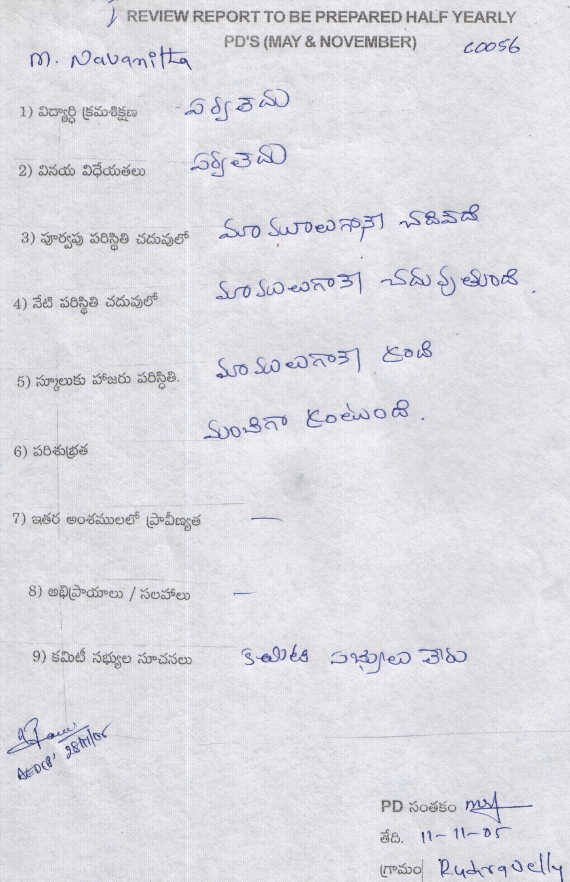 REVIEW REPORT TO BE PREPARED HALF YEARLY
PD'S (MAY & NOVEMBER) C0056
M. Navanitta
1) విద్యార్ధి క్రమశిక్షణ సర్వ తెమ
2) వినయ విధేయతలు సర్వ తెమ
3) పూర్వపు పరిస్థితి చదువులో మామూలుగానే చదివేది
4) నేటి పరిస్థితి చదువులో మాములుగానే చదువుతుంది.
5) స్కూలుకు హాజరు పరిస్థితి. మాములుగానే కంది
మంచిగా కంటుంది.
6) పరిశుభ్రత
7) ఇతర అంశములలో ప్రావీణ్యత —
8) అభిప్రాయాలు / సలహాలు —
9) కమిటీ సభ్యుల సూచనలు కమిటి సభ్యులు లేరు
PD సంతకం
తేది. 11-11-05
గ్రామం Rudravelly